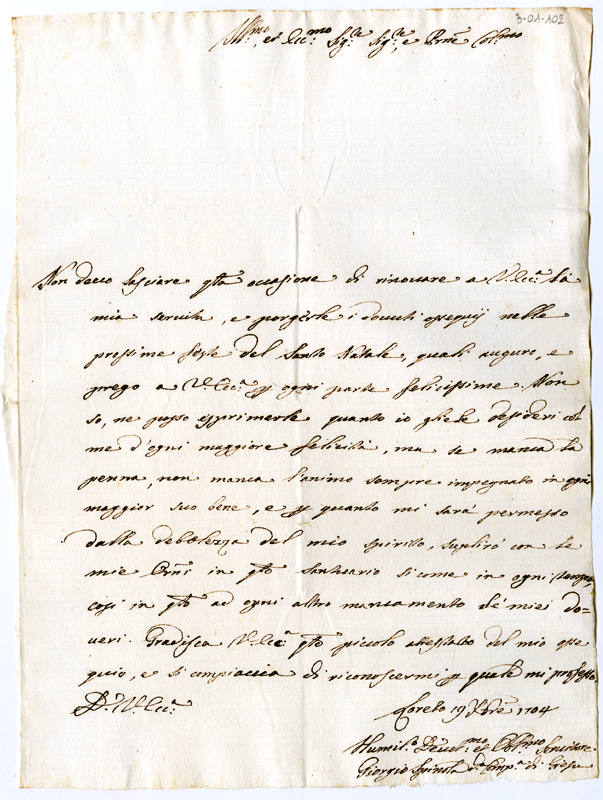 3-01-102
Ill.mo, et Ecc.mo Sig.re Sig.re, e Prne Col.mo
Non devo lasciare qta occasione di rinovare a V. Ecc.a la
mia servitù, e porgerle i dovuti ossequij nelle
prossime feste del Santo Natale, quali auguro, e
prego a V. Ecc.a p ogni parte felicissime. Non
so, ne posso esprimerle quanto io gliele desideri col
me d'ogni maggiore felicità, ma se manca la
penna, non manca l'animo sempre impegnato in ogni
maggior suo bene, e p quanto mi sarà permesso
dalla debolezza del mio spirito, suplirò con le
mie Orni in qto Santuario si come in ogni tempo,
così in qto ad ogni altro mancamento de' miei do=
veri. Gradisca V. Ecc.a qto piccolo attestato del mio osse
quio, e si compiaccia di riconoscermi p quale mi professo.
D. V. Ecc.a
Loreto 19 Xbre 1704
Humil.o Devot.mo et Obl.mo Servitore
Giorgio Spinola d.a Comp.a di Giesu